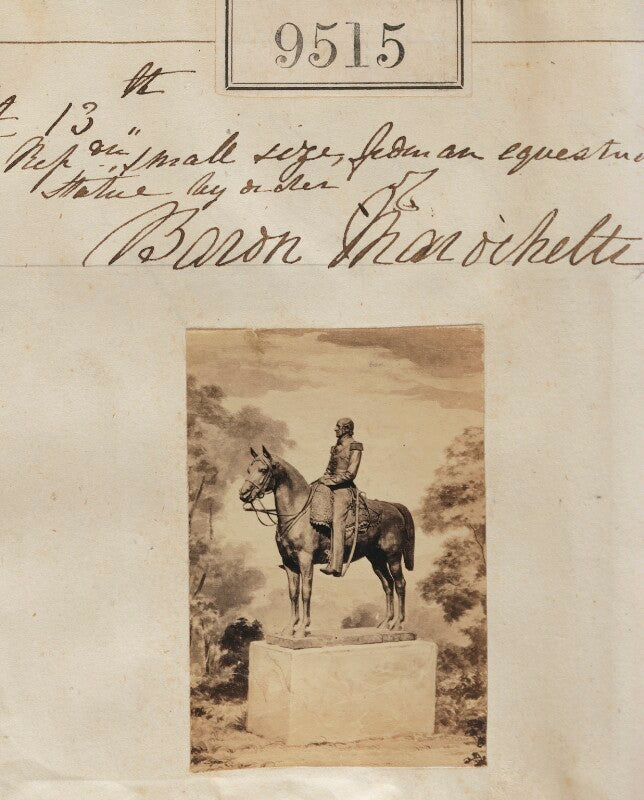 9515
13th
Repdn small size, from an equestri
Statue by order of
Baron Marochetti